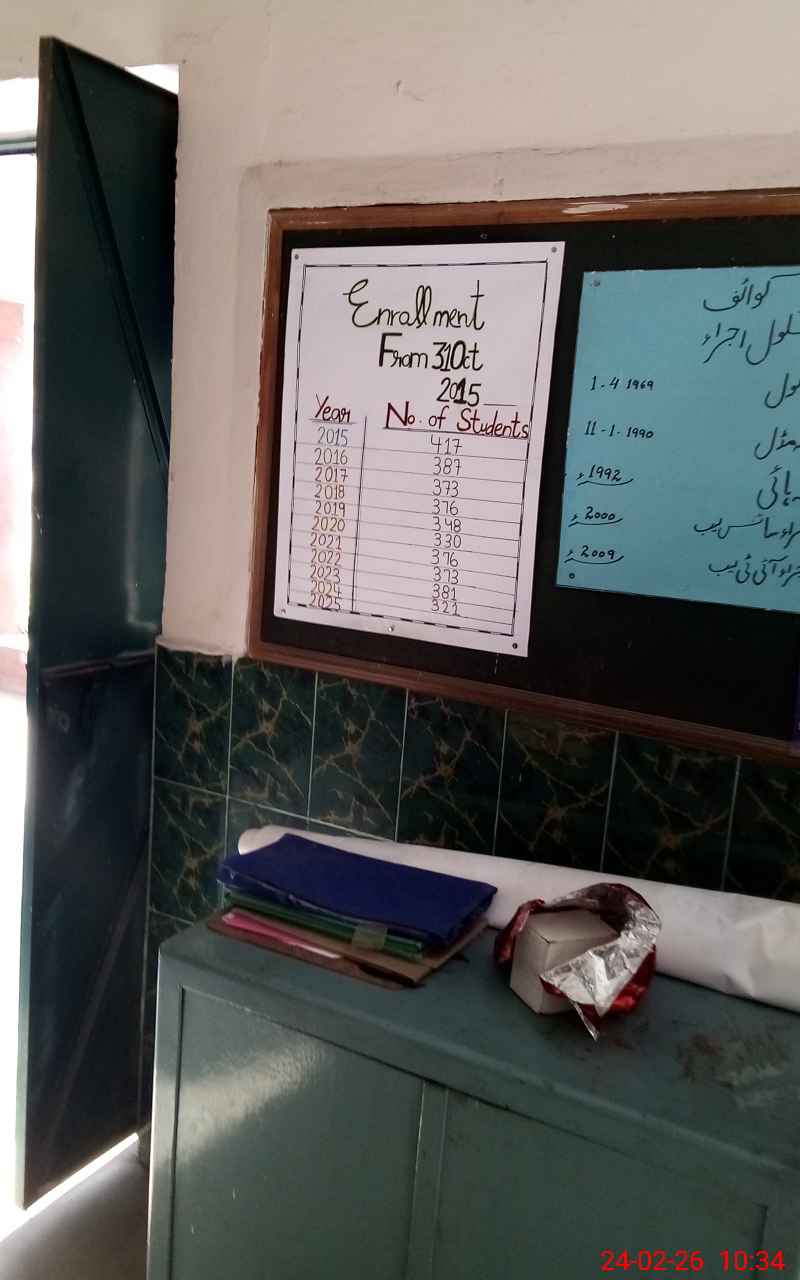 Enrallment
From 31Oct
2015
Year No. of Students
2015 417
2016 387
2017 373
2018 376
2019 348
2020 330
2021 376
2022 373
2023 381
2024 321
2025
کوائف
اجراء
1-4 1969
11-1-1990 مڈل
1992ء ہائی
2000ء اجراء سائنس لیب
2009ء اجراء آئی ٹی لیب
24-02-26 10:34